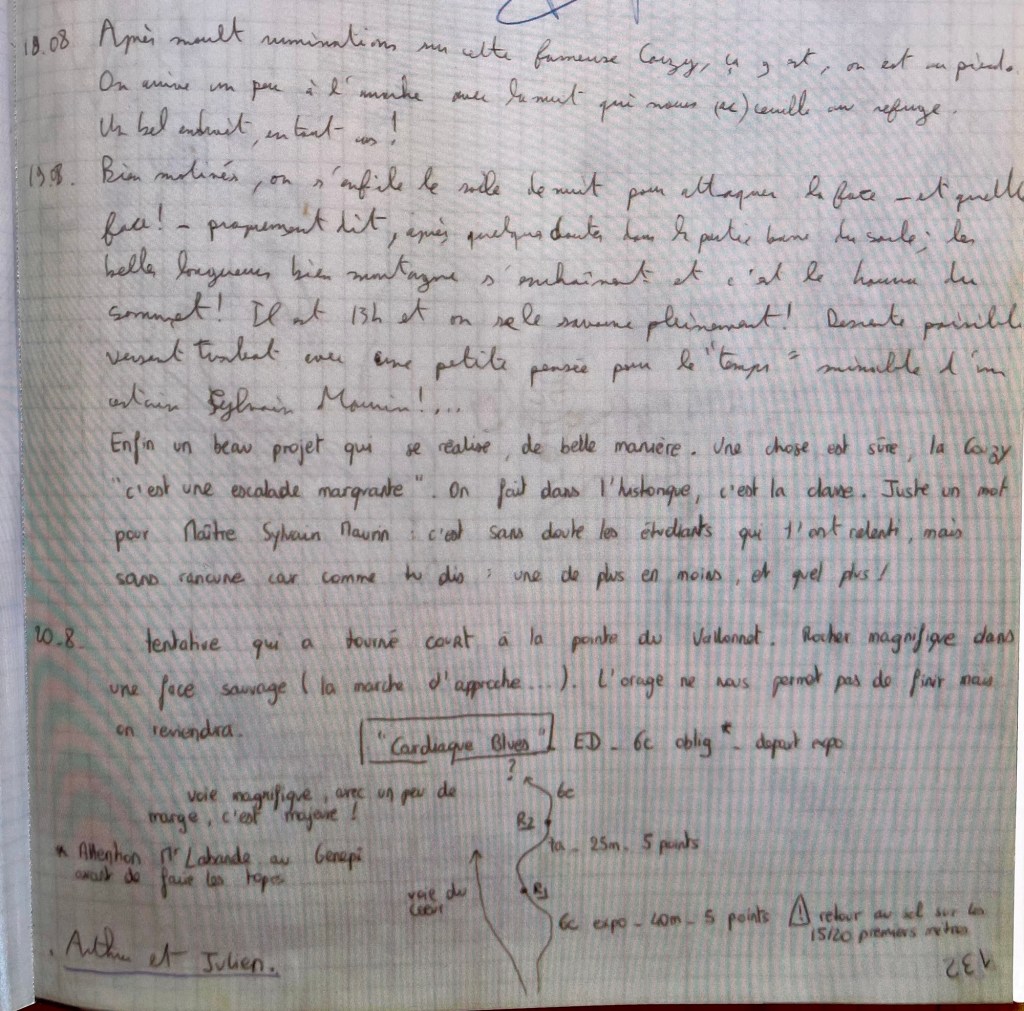 18.08 Après moult ruminations sur cette fameuse Couzy, ça y est, on est au pied.
On arrive un peu à l'arrache avec la nuit qui nous (ac)cueille au refuge.
Un bel endroit, en tout cas !
19.8. Bien motivés, on s'enfile le socle de nuit pour attaquer la face - et quelle
face ! - proprement dit, après quelques doutes dans la partie basse du socle ; les
belles longueurs bien montagne s'enchaînent et c'est le bonheur du
sommet ! Il est 13h et on se le savoure pleinement ! Descente paisible
versant avec une petite pensée pour le "temps" minable d'un
certain Sylvain Maurin !...
Enfin un beau projet qui se réalise, de belle manière. Une chose est sûre, la Couzy
"c'est une escalade marquante". On fait dans l'historique, c'est la classe. Juste un mot
pour Maître Sylvain Maurin : c'est sans doute les étudiants qui t'ont ralenti, mais
sans rancune car comme tu dis : une de plus en moins, et quel plus !
20.8. tentative qui a tourné court à la pointe du Vallonnet. Rocher magnifique dans
une face sauvage (la marche d'approche...). L'orage ne nous permet pas de finir mais
on reviendra.
"Cardiaque Blues" ED - 6c oblig * - départ expo
?
voie magnifique, avec un peu de
marge, c'est majeur !
6c
R2
7a - 25m - 5 points
* Attention Mr Labande au Genepi
avant de faire les topos
R1
voie du
coeur
6c expo - 40m - 5 points ! retour au sol sur les
15/20 premiers mètres
. Arthur et Julien.
132